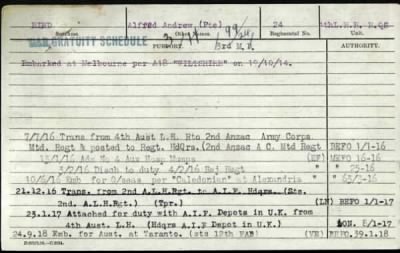 HIND Alfred Andrew. (Pte) 24 4thL.H.R. H.Qrs
Surname. Other Names. Regimental No. Unit.
WAR GRATUITY SCHEDULE
PURPORT. 3rd M.D. AUTHORITY.
Embarked at Melbourne per A18 "WILTSHIRE" on 19/10/14.
7/7/16 Trans from 4th Aust L.H. Rto 2nd Anzac Army Corps
Mtd. Regt & posted to Regt. HdQrs.(2nd Anzac A C. Mtd Regt BEFO 1/1-16
Adm No 4 Aux Hosp (EF) MEVO 16-16
3/2/16 Disch to duty 4/2/16 Rej Regt " 25-16
10/6/16 Emb for O/seas per "Caledonian" at Alexandria "
21.12.16 Trans. from 2nd A.L.H.Rgt. to A.I.F. Hdqrs. (Sts.
2nd. A.L.H.Rgt.) (Tpr.) (LN) REFO 1/1-17
23.1.17 Attached for duty with A.I.F. Depots in U.K. from
4th Aust. L.H. (Hdqrs A.I.F Depot in U.K.) LON. 8/1-17
24.9.18 Emb. for Aust. at Taranto. (sts 12th FAB) (VE) BEFO.39.1.18